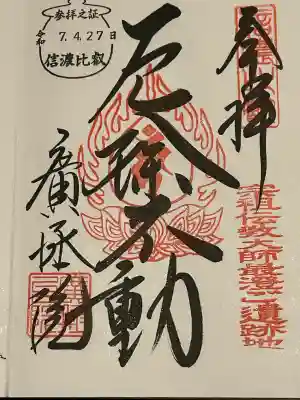 参拝之証
令和
7.4.27日
信濃比叡
奉拝
宗祖伝教大師最澄ご遺跡地
厄除不動
廣拯院